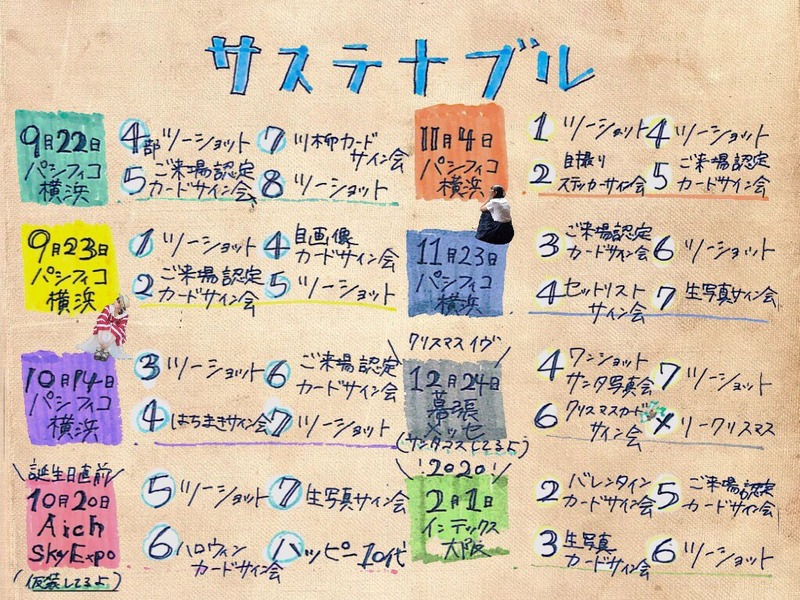 サステナブル
9月22日
パシフィコ
横浜
4部 ツーショット
5 ご来場認定
カードサイン会
7 川柳カード
サイン会
8 ツーショット
9月23日
パシフィコ
横浜
1 ツーショット
2 ご来場認定
カードサイン会
4 自画像
カードサイン会
5 ツーショット
10月14日
パシフィコ
横浜
3 ツーショット
4 はちまきサイン会
6 ご来場認定
カードサイン会
7 ツーショット
\誕生日直前/
10月20日
Aich
SkyExpo
(仮装してるよ)
5 ツーショット
6 ハロウィン
カードサイン会
7 生写真サイン会
ハッピー10代
11月4日
パシフィコ
横浜
1 ツーショット
2 自撮り
ステッカーサイン会
4 ツーショット
5 ご来場認定
カードサイン会
11月23日
パシフィコ
横浜
3 ご来場認定
カードサイン会
4 セットリスト
サイン会
6 ツーショット
7 生写真サイン会
\クリスマスイヴ/
12月24日
幕張
メッセ
(サンタマスしてるよ)
4 ワンショット
サンタ写真会
6 クリスマスカード
サイン会
7 ツーショット
メリークリスマス
\2020!/
2月1日
インテックス
大阪
2 バレンタイン
カードサイン会
3 生写真
カードサイン会
5 ご来場認定
カードサイン会
6 ツーショット